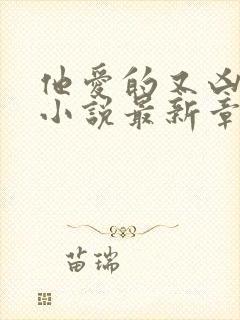 他爱的又凶
小说最新章
苗瑞